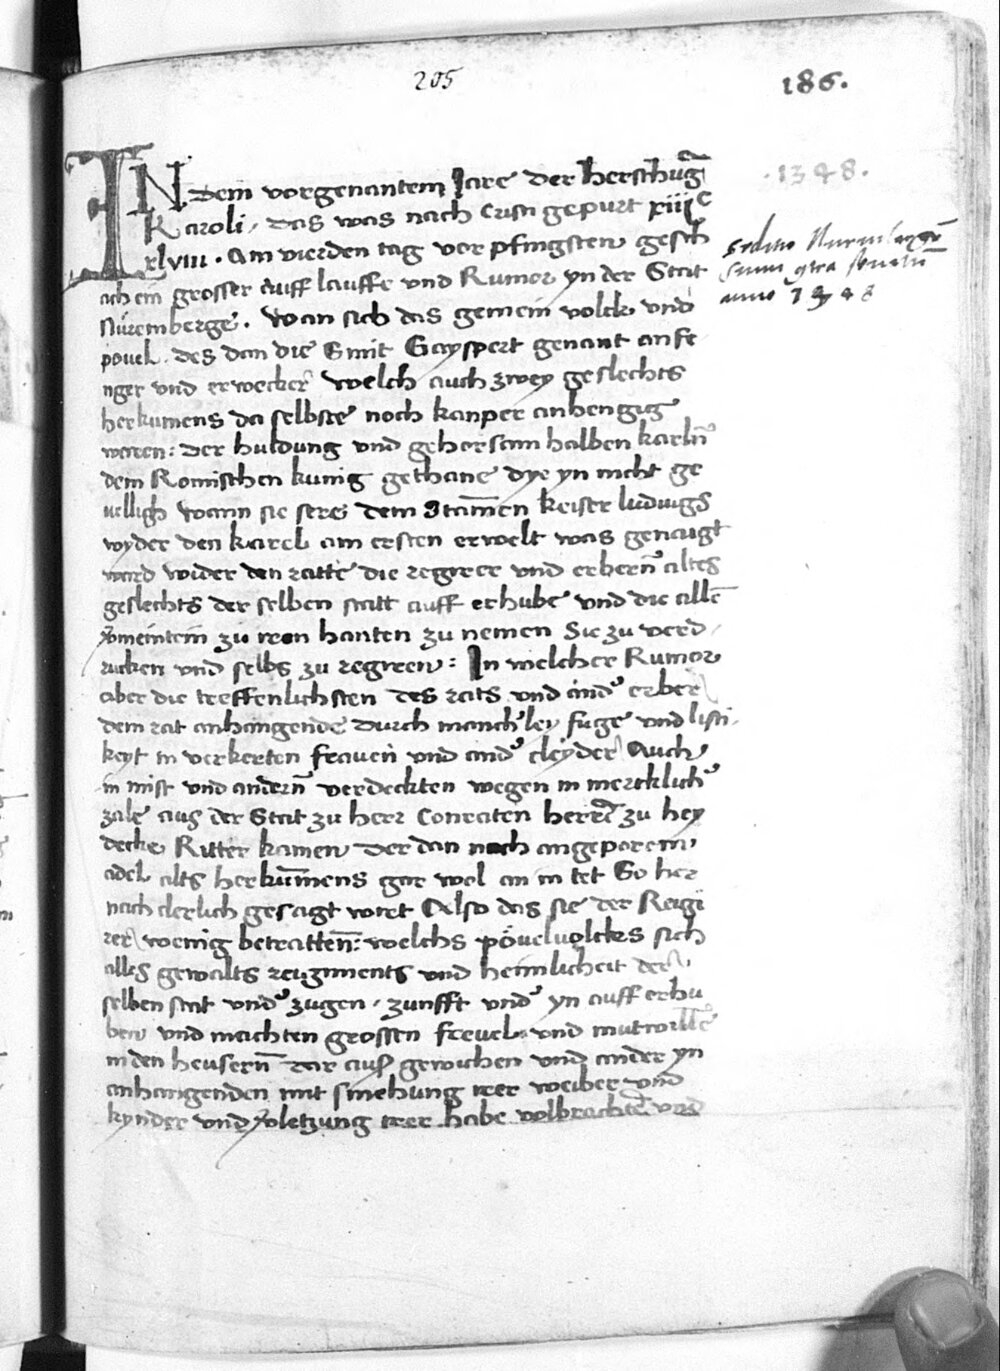 205
186.
IN dem vorgenantem Jare der herschūg
Karoli, das was nach Cristi gepurt xiiijc
xlviii. Am vierden tag vor pfingsten gesch
ach ein grosser auff lauffe und Rumor yn der Stat
Nüremberge. Wan sich das gemein volck und
povel. des dan die Smit Gayspert genant anfe
nger und erwecker welch auch zwey geslechts
herkumens da selbste noch kanper anhengig
waren: der huldung und gehorsam halben karln̄
dem Romischen kunig gethane dye yn nicht ge
velligh wann sie sere dem Stam̄en keiser ludwigs
wyder den Karel am ersten erwelt was genaigt
ward wider den ratte die regirer und erbern̄ altes
geslechts der selben statt auff erhube und die allē
zu iren hanten zu nemen Sie zu verd
rucken und selbs zu regiren: In welcher Rumor
aber die treffenlichsten des rats und and' erber
dem rat anhangende durch mancherley fuge und listi
keyt in verkerten frauen und and' cleyder Auch
in mist und andern̄ verdeckten wegen in mercklich'
zale aus der Stat zu herr Conraten herrē zu hey
decke Ritter kamen der dan nach angeporem
adel alts herkūmens gar wol an in tet So her
nach clerlich gesagt wirt Also das sie der Regi
rer wenig betratten: welchs pövelvolckes sich
alles gewalts regiments und heimlicheit der
selben stat und' zugen, zunfft und' yn auff erhu
ben und machten grossen frevel und mutwillē
in den heusern̄ dar auß gewichen und ander yn
anhangenden mit smehung irer weiber und
kynder und vletzung irer habe volbrachtē und
.1348.
Seditio Nurenbergē
senatū
anno 1348